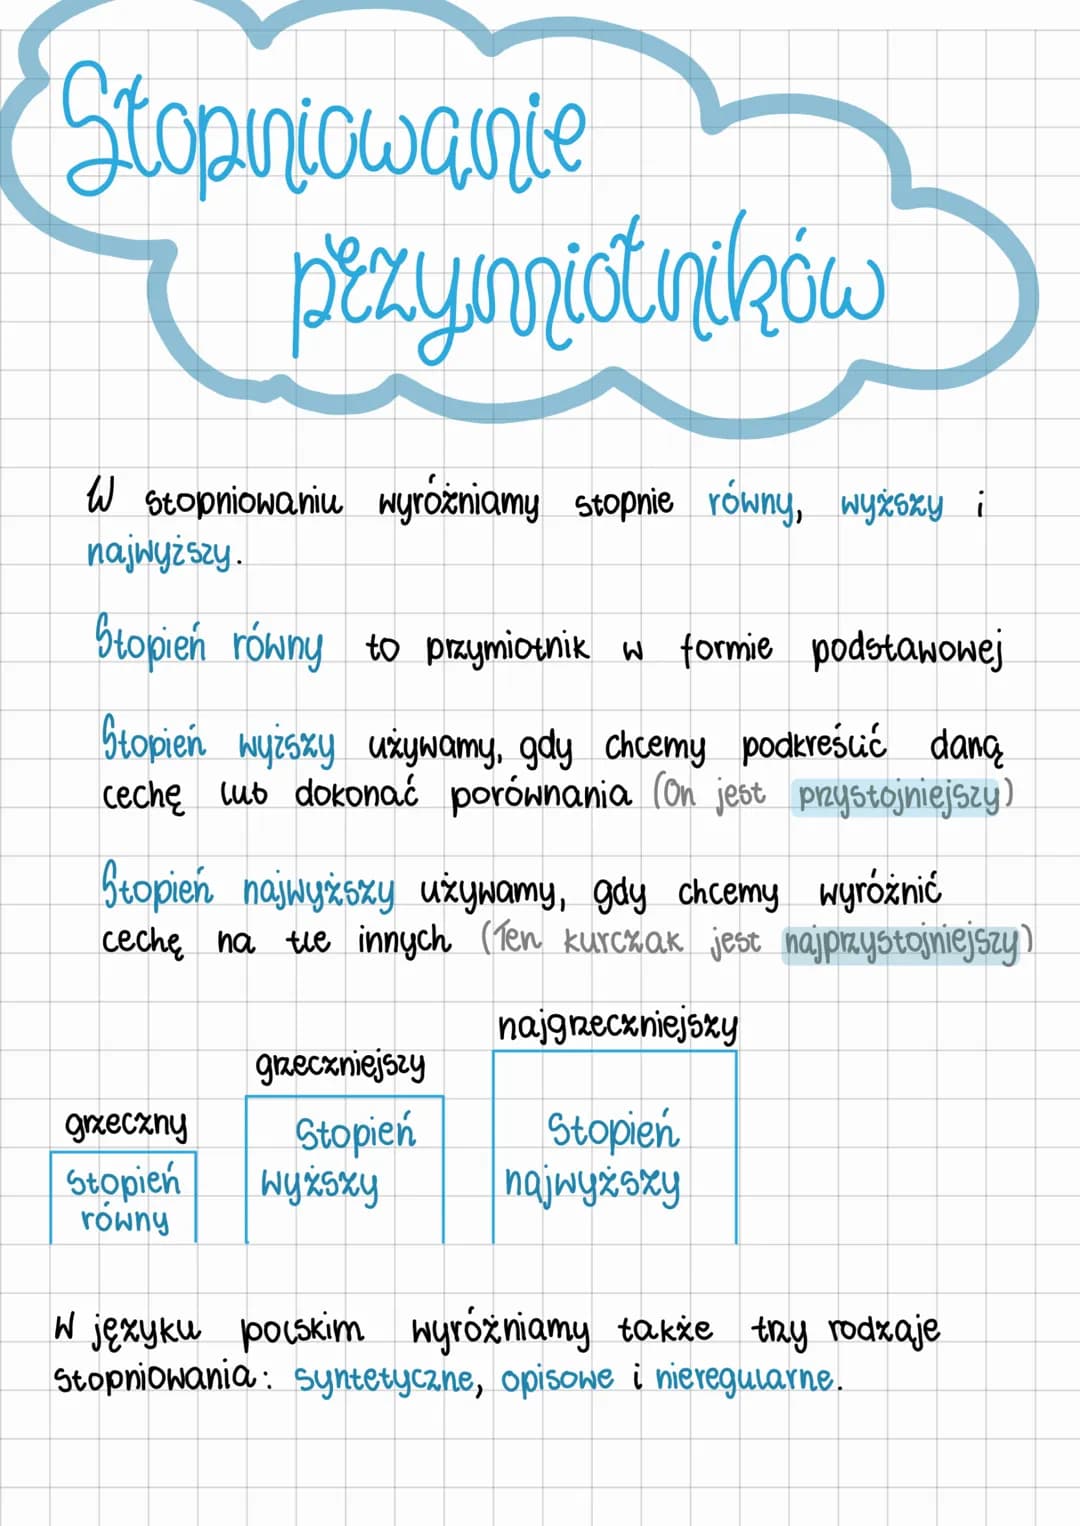 Stopniowanie
przymiotników
W stopniowaniu wyróżniamy stopnie równy, wyższy i
najwyższy.
Stopień równy to przymiotnik w formie podstawowej
Stopień wyższy używamy, gdy chcemy podkreślić daną
cechę lub dokonać porównania (On jest przystojniejszy)
Stopień najwyższy używamy, gdy chcemy wyróżnić
cechę na tle innych (Ten kurczak jest najprzystojniejszy)
najgrzeczniejszy
grzeczniejszy
grzeczny
Stopień
równy
Stopień
wyższy
Stopień
najwyższy
W języku polskim wyróżniamy także trzy rodzaje
stopniowania: syntetyczne, opisowe i nieregularne.